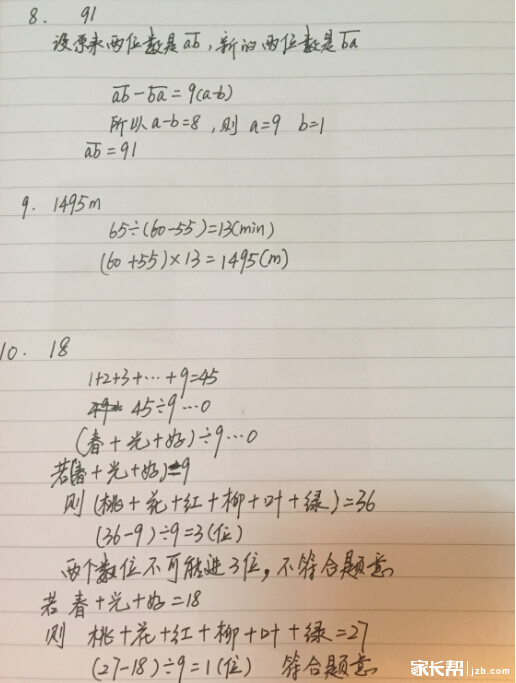 8. 91
设原来两位数是ab,新的两位数是ba
ab-ba=9(a-b)
所以a-b=8,则 a=9 b=1
ab=91
9. 1495m
65÷(60-55)=13(min)
(60+55)×13=1495(m)
10. 18
1+2+3+…+9=45
45÷9…0
(春+光+好)÷9…0
若(春+光+好)=9
则 (桃+花+红+柳+叶+绿)=36
(36-9)÷9=3(位)
两个数位不可能进3位,不符合题意
若 春+光+好=18
则 桃+花+红+柳+叶+绿=27
(27-18)÷9=1(位) 符合题意
家长帮 jzb.com